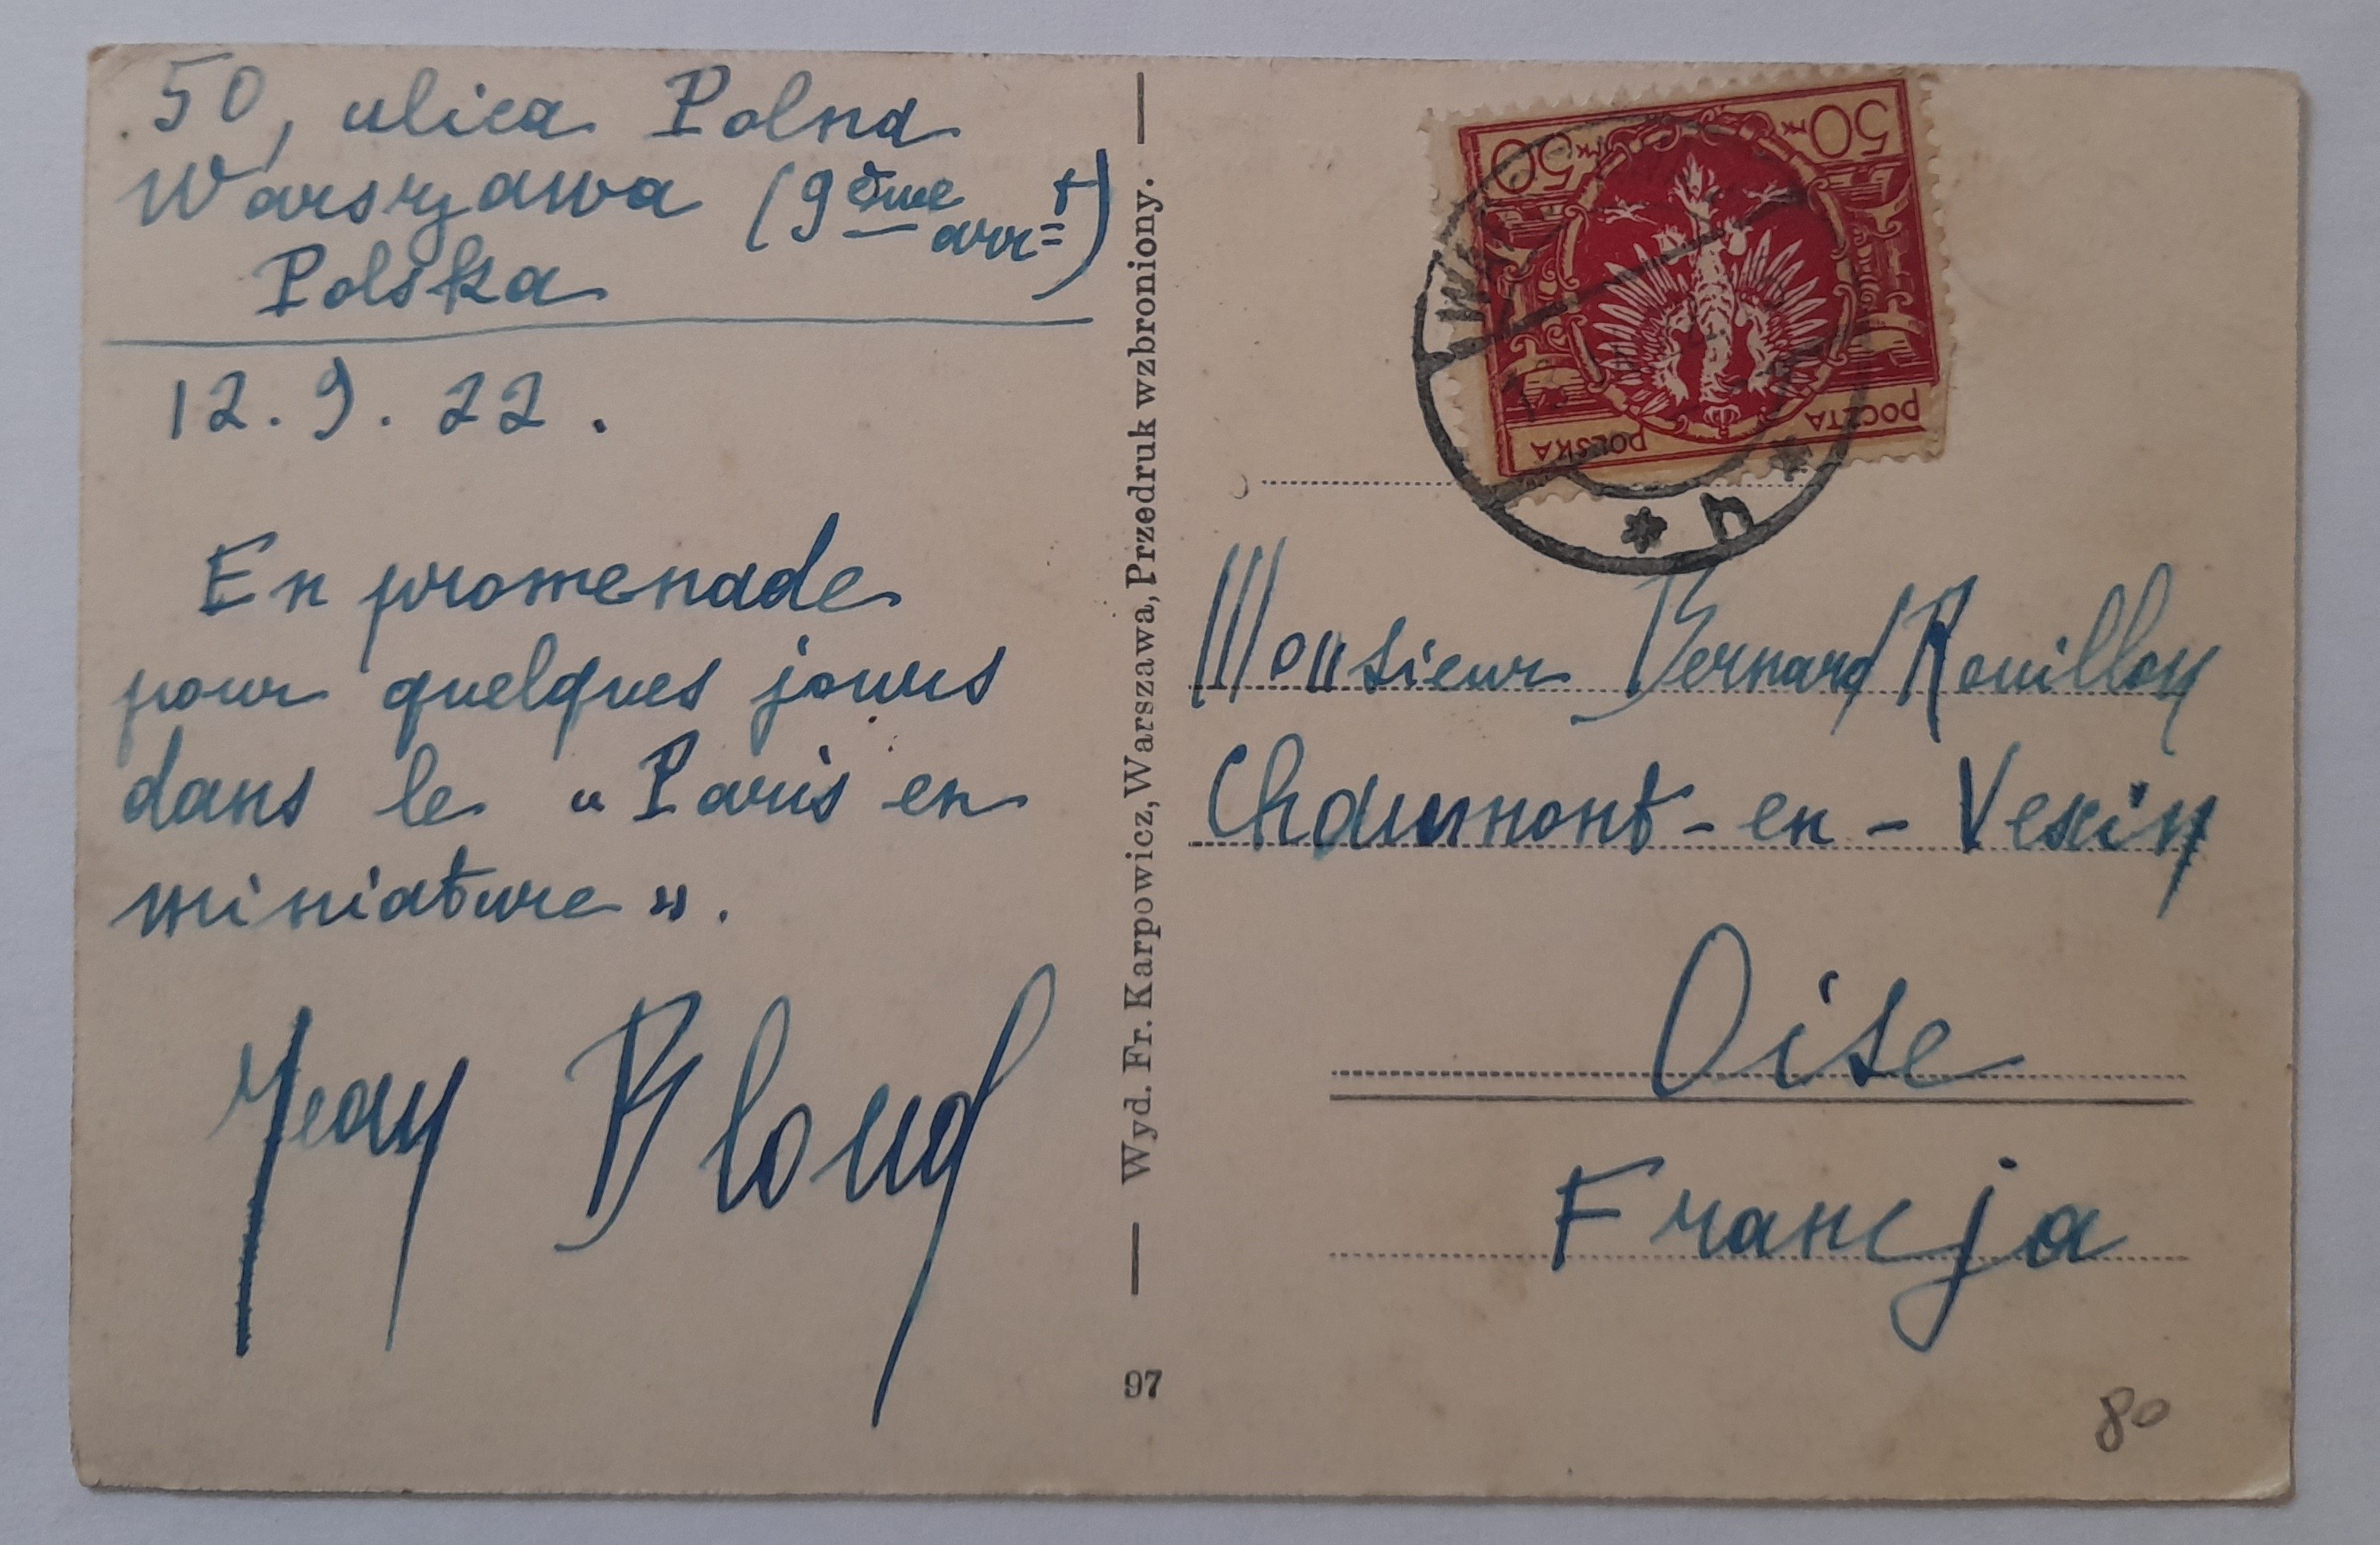 50, ulica Polna
Warszawa (9ème arrt)
Polska
12. 9. 22.
En promenade
pour quelques jours
dans le "Paris en
miniature".
Jean Bloud
Wyd. Fr. Karpowicz, Warszawa, Przedruk wzbroniony.
97
50 MK 50 MK
POCZTA POLSKA
* h *
Monsieur Bernard Rouillon
Chaumont-en-Vexin
Oise
Francja
80